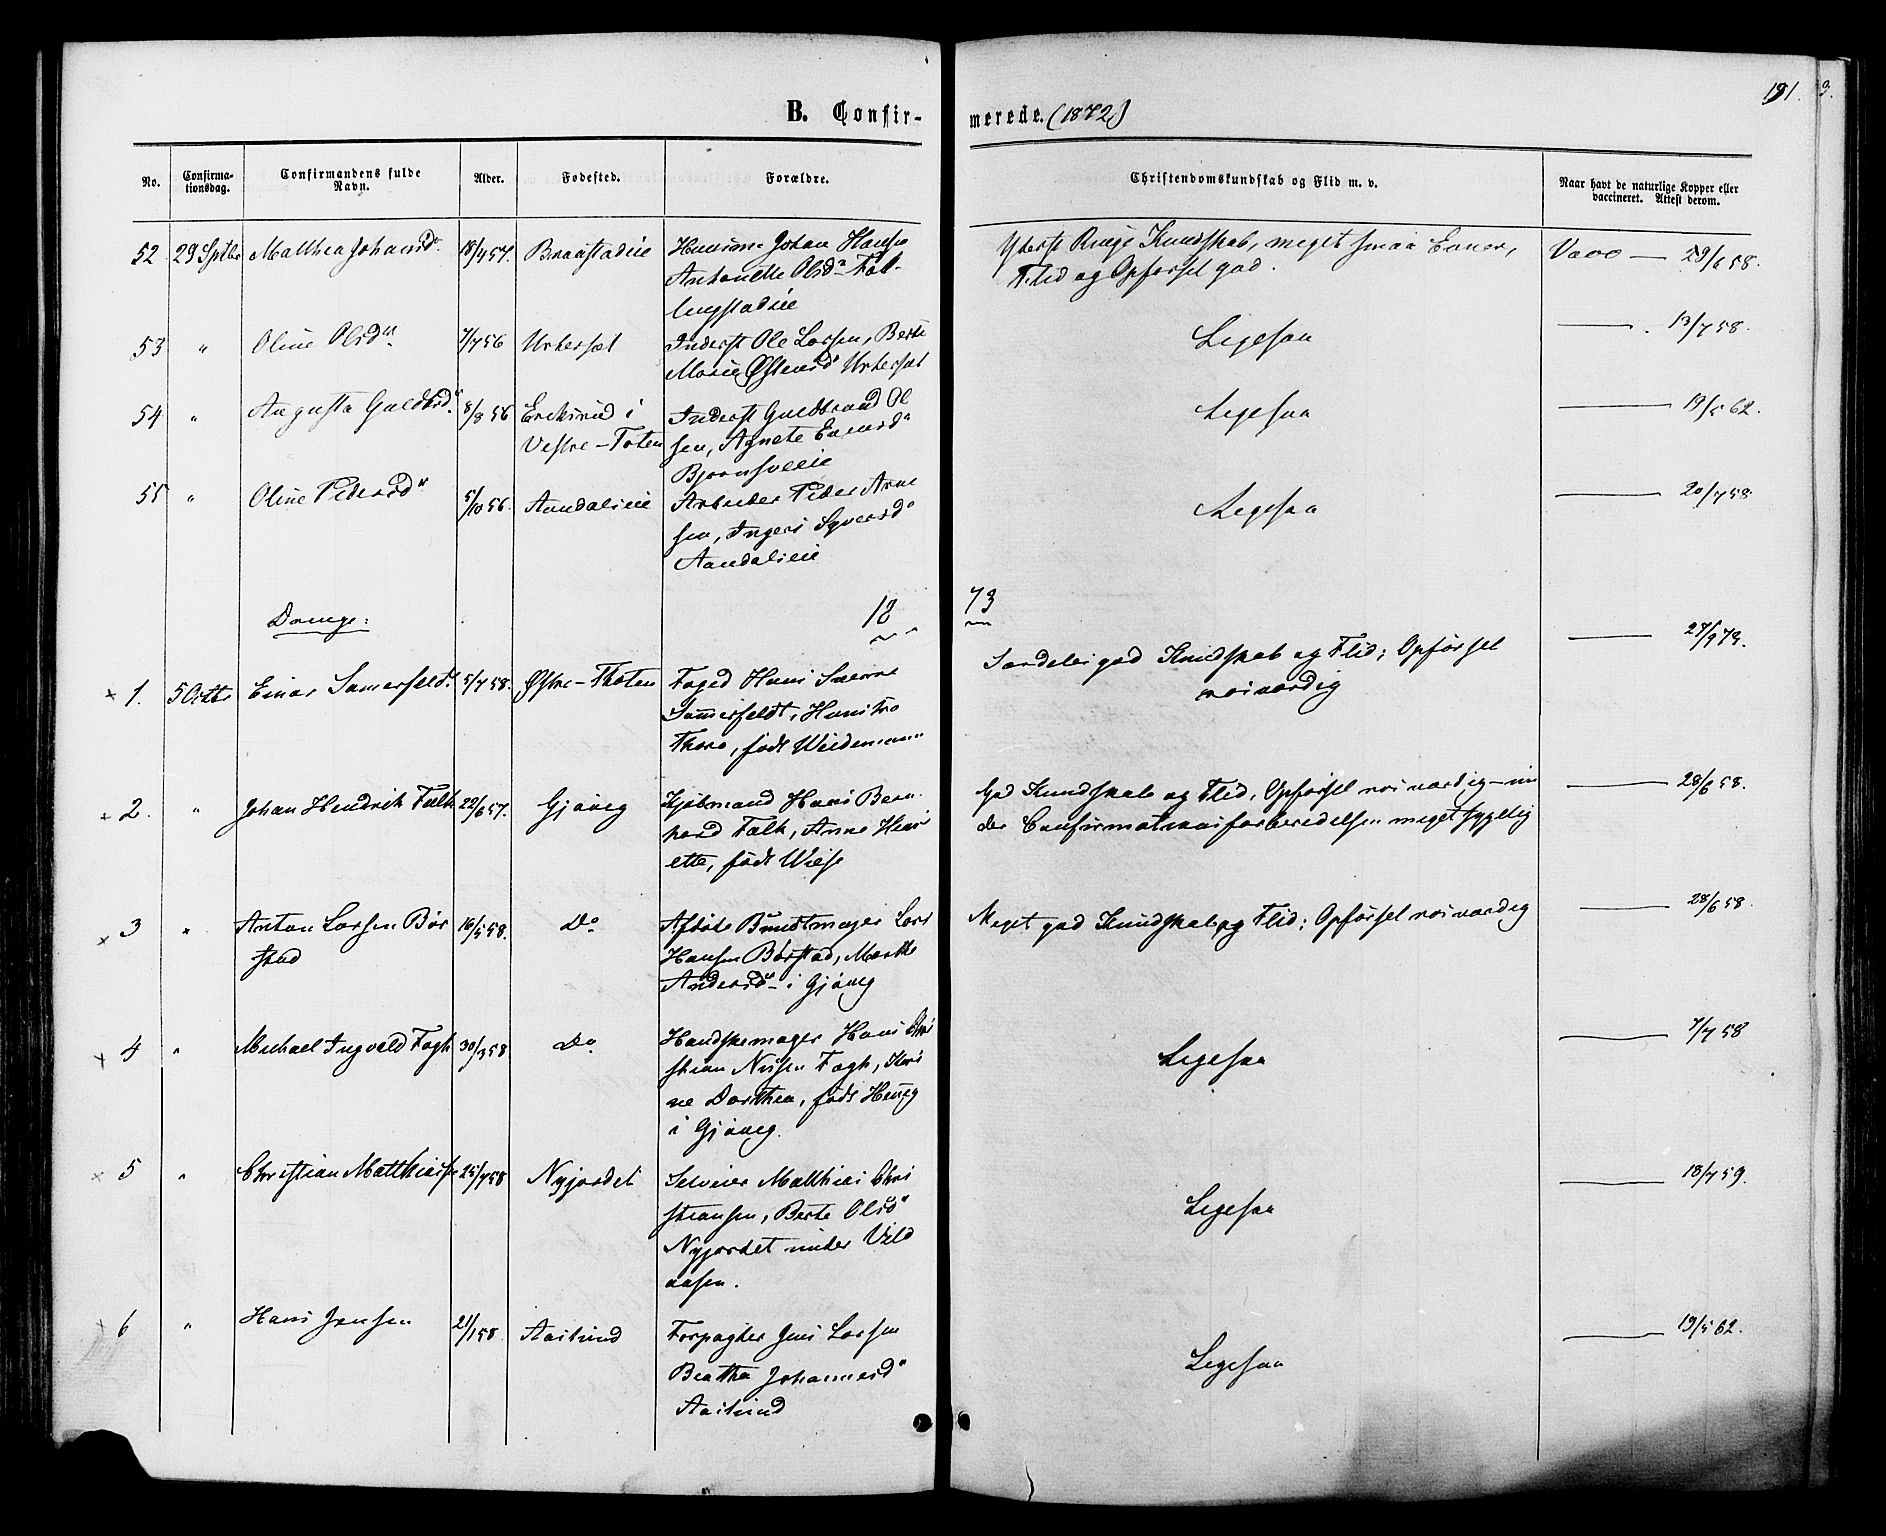 B. Confir-
merede. (1872)
191.
3.
No.
Confirma-
tionsdag.
Confirmandens fulde
Navn.
Alder.
Fødested.
Forældre.
Christendomskundskab og Flid m. v.
Naar havt de naturlige Kopper eller
vaccineret. Attest derom.
52 29 Sptbr Matthea Johansd. 18/4 57. Braastadeie Huusm. Johan Hansen
Antonette Olsd.
Yderst Ringe Kundskab, meget smaa Evner,
Flid og Opførsel god.
Vacc — 29/6 58.
53 " Oline Olsd. 7/7 56 Inderst Ole Larsen, Berte
Marie
Ligesaa
— 13/7 58.
54 " Augusta Guldbrd. 8/8 56 Eriksrud i
Vestre-Toten
Inderst Guldbrand Ol
sen, Agnete Evensd
Bjørnsveeie
Ligesaa
— 19/5 62.
55 " Oline Pedersd 5/10 56. Aandalseie
Arbeider Peder Arne
sen, Ingeri Syversd
Aandalseie
Ligesaa
— 20/7 58.
Drenge:
18
73
1. 5 Octbr Einar Sommerfeldt. 5/7 58. Østre-Thoten
Foged Hans Sverre
Sommerfeldt, Hustro
Thora, født Weidemann
Særdeles god Kundskab og Flid; Opførsel
roisværdig
— 27/9 73.
2. " Johan Hendrik Falk 22/6 57. Gjøvig
Kjøbmand Hans Bern
hard Falk, Anne Henri
ette, født Wiese
God Kundskab og Flid, Opførsel roisværdig — un
der Confirmationsforberedelsen meget sygelig
— 28/6 58.
3 " Anton Larsen Bør
stad
16/5 58. Do
Afdøde Buntmager Lars
Hansen Børstad, Marthe
Andersd i Gjøvig
Meget god Kundskab og Flid; Opførsel roisværdig
— 28/6 58.
4 " Michael Ingvald Fogh 30/3 58 Do
Handskemager Hans Chri
stian Nilsen Fogh, Kari
ne Dorthea, født
i Gjøvig.
Ligesaa
— 7/7 58
5 " Christian Matthiasen 25/7 58 Nyjordet
Selveier Matthias Chri
stiansen, Berte Olsd
Nyjordet under Vild
aasen.
Ligesaa
— 18/7 59.
6 " Hans Jensen 21/1 58 Aaslund
Forpagter Jens Larsen
Beathe Johannesd
Aaslund
Ligesaa
— 19/5 62.